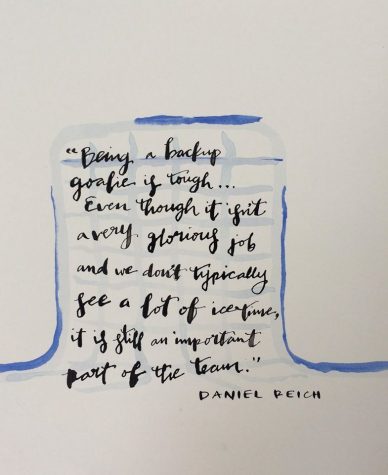 "Being a backup
goalie is tough...
Even though it isn't
a very glorious job
and we don't typically
see a lot of ice time,
it is still an important
part of the team."
DANIEL REICH